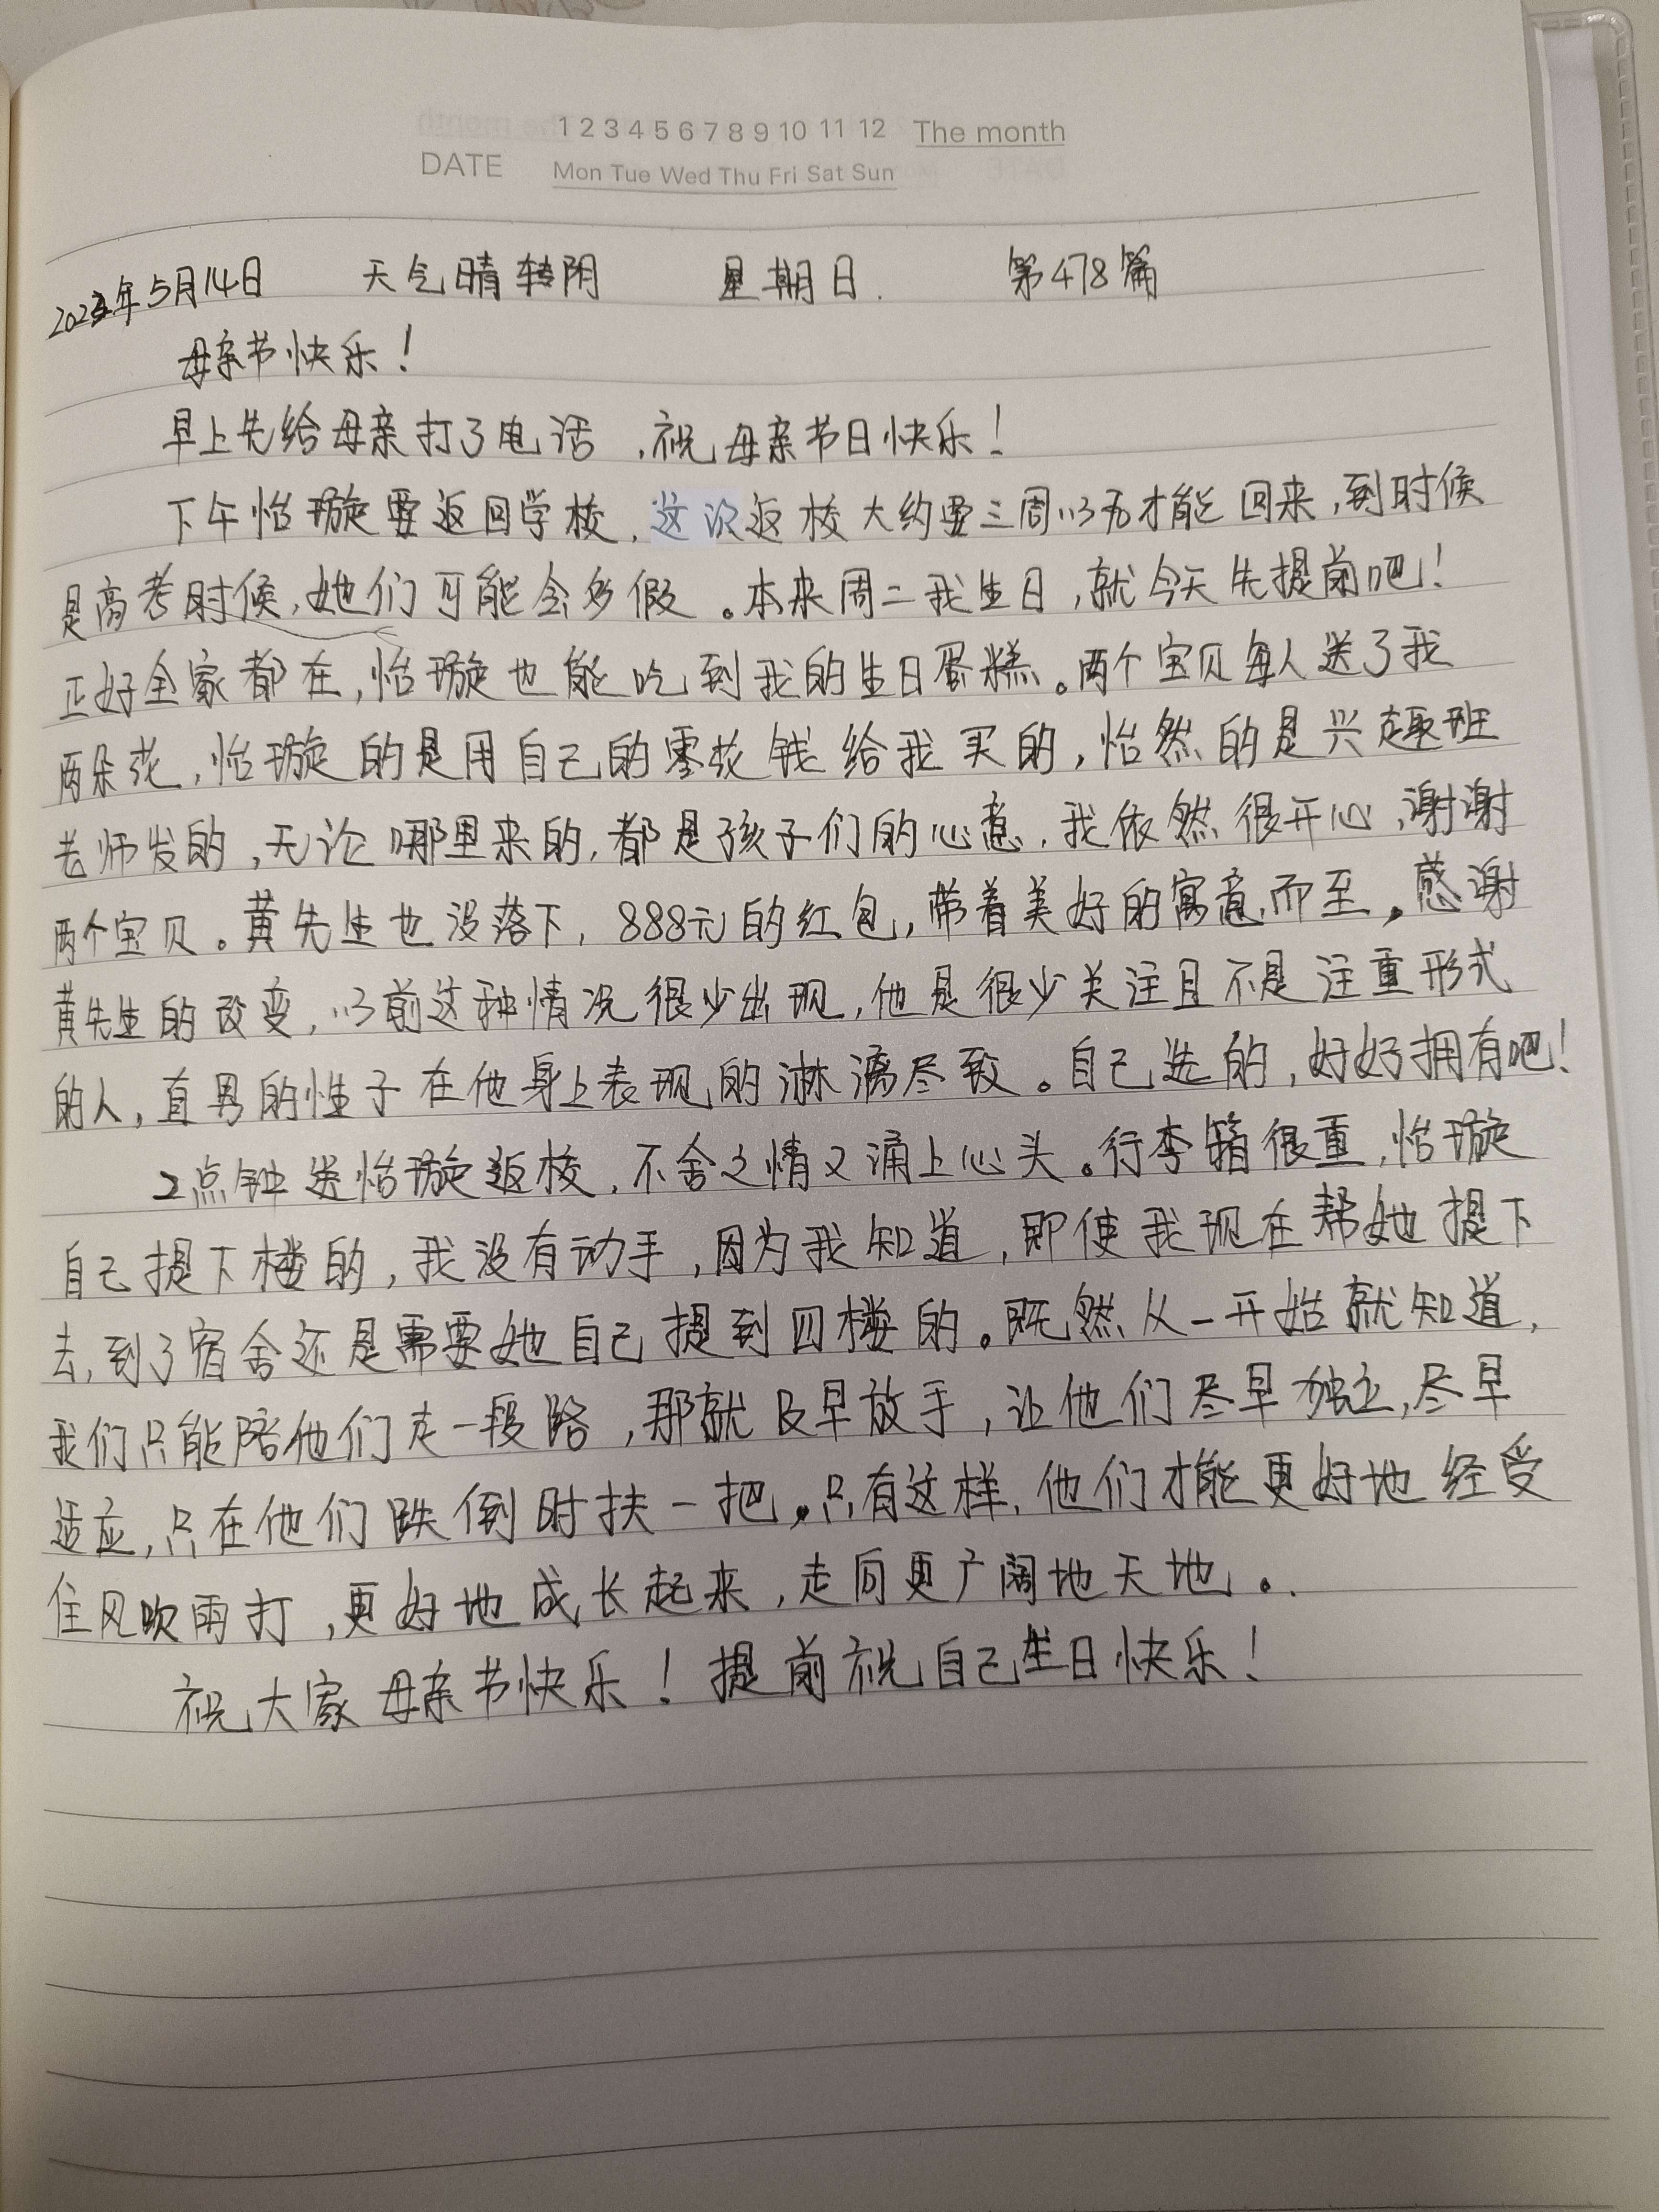 1 2 3 4 5 6 7 8 9 10 11 12 The month
DATE Mon Tue Wed Thu Fri Sat Sun
2023年5月14日 天气晴转阴 星期日. 第478篇
母亲节快乐！
早上先给母亲打了电话，祝母亲节日快乐！
下午怡璇要返回学校，这次返校大约要三周以后才能回来，到时候
是高考时候，她们可能会多假。本来周二我生日，就今天先提前吧！
正好全家都在，怡璇也能吃到我的生日蛋糕。两个宝贝每人送了我
两朵花，怡璇的是用自己的零花钱给我买的，怡然的是兴趣班
老师发的，无论哪里来的，都是孩子们的心意，我依然很开心，谢谢
两个宝贝。黄先生也没落下，888元的红包，带着美好的寓意而至。感谢
黄先生的改变，以前这种情况很少出现，他是很少关注且不是注重形式
的人，直男的性子在他身上表现的淋漓尽致。自己选的，好好拥有吧！
2点钟送怡璇返校，不舍之情又涌上心头。行李箱很重，怡璇
自己提下楼的，我没有动手，因为我知道，即使我现在帮她提下
去，到了宿舍还是需要她自己提到四楼的。既然从一开始就知道，
我们只能陪他们走一段路，那就及早放手，让他们尽早独立，尽早
适应，只在他们跌倒时扶一把。只有这样，他们才能更好地经受
住风吹雨打，更好地成长起来，走向更广阔地天地。.
祝大家母亲节快乐！提前祝自己生日快乐！